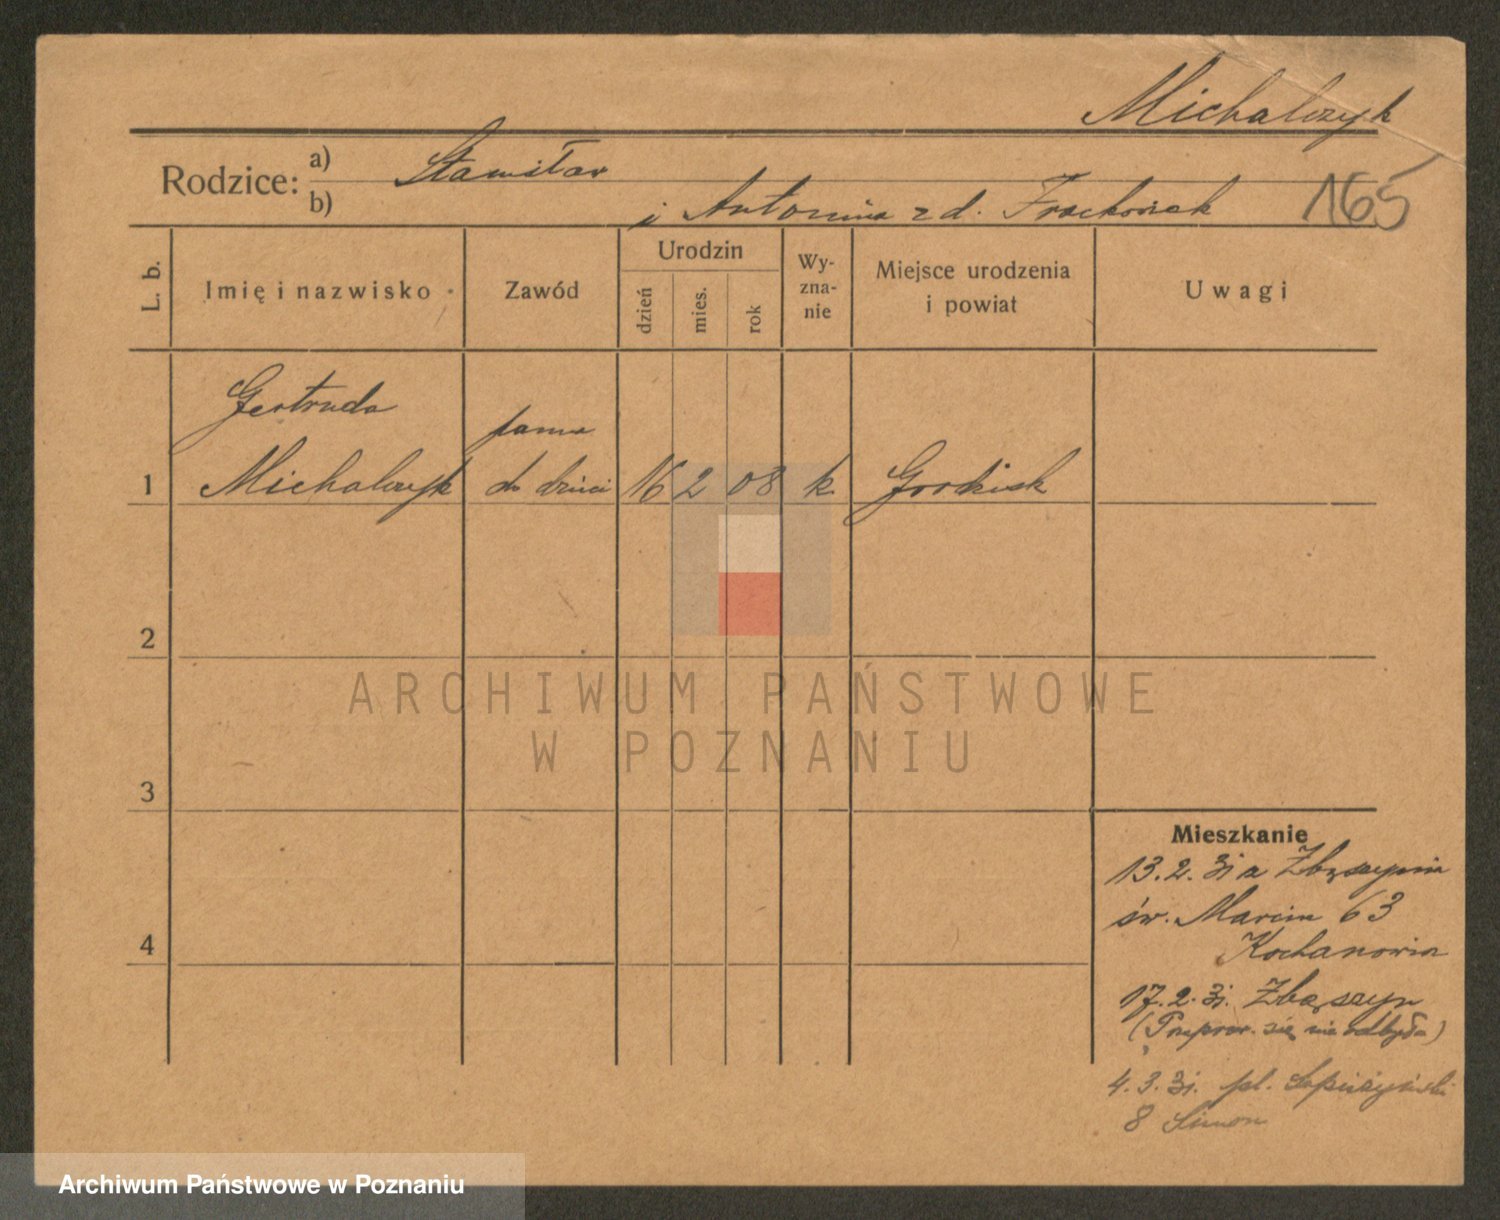 Michalczyk
Rodzice: a) Stanisław
b) i Antonina z d. Frąckowiak
165
L. b.
Imię i nazwisko
Zawód
Urodzin
dzień
mies.
rok
Wy-
zna-
nie
Miejsce urodzenia
i powiat
Uwagi
Gertruda
panna
1 Michalczyk do dzieci 16 2 08 k. Grodzisk
2
3
4
Mieszkanie
13.2.31 z Zbąszynia
św. Marcin 63
Kochanowia
17.2.31. Zbąszyn
(Przeprow. się nie odbyła)
4.3.31. pl. Sapieżyński
8 Simon
ARCHIWUM PAŃSTWOWE
W POZNANIU
Archiwum Państwowe w Poznaniu